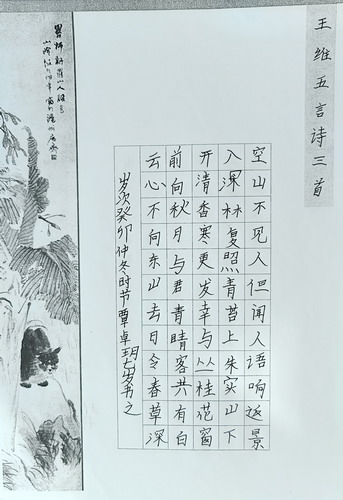 王维五言诗三首
空山不见人但闻人语响返景
入深林复照青苔上朱实山下
开清香寒更发幸与丛桂花窗
前向秋月与君青睛客共有白
云心不向东山去日令春草深
岁次癸卯仲冬时节覃卓玥七岁书之